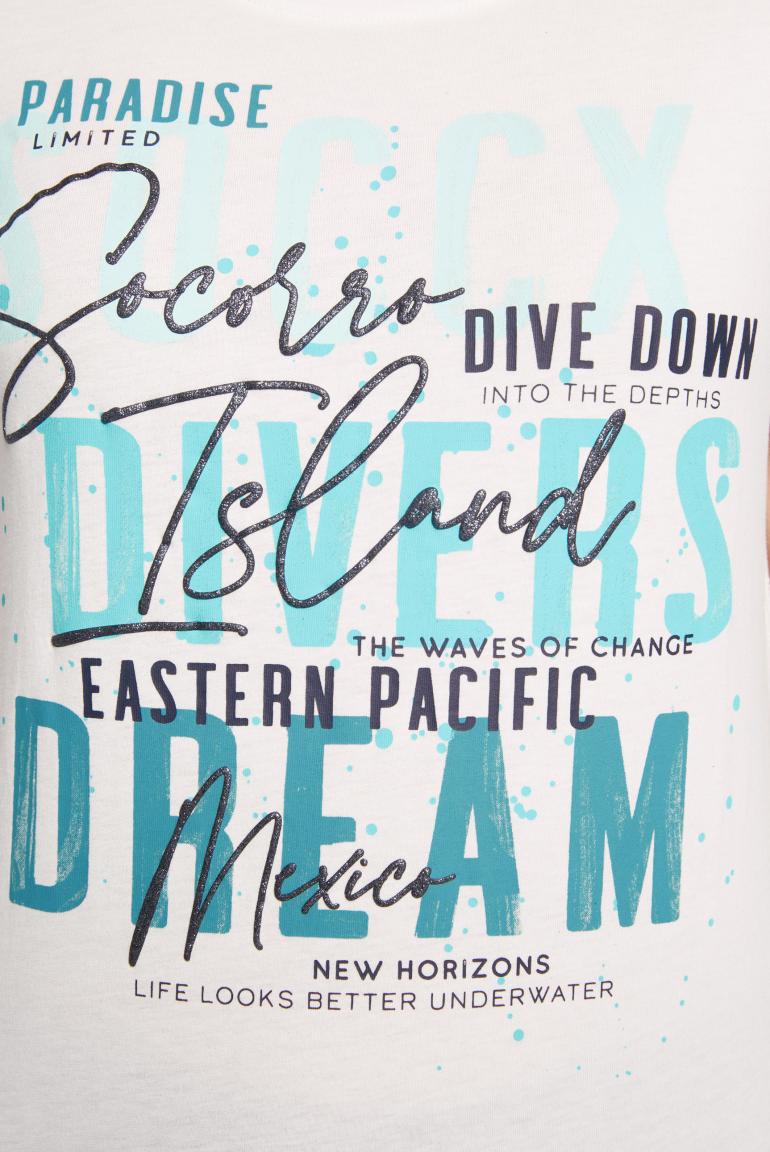 PARADISE
LIMITED
SOCCX
Socorro
DIVE DOWN
INTO THE DEPTHS
Island
DIVERS
THE WAVES OF CHANGE
EASTERN PACIFIC
DREAM
Mexico
NEW HORIZONS
LIFE LOOKS BETTER UNDERWATER